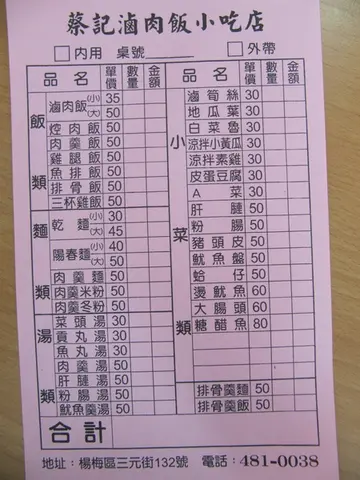 蔡記滷肉飯小吃店
□內用 桌號______ □外帶
品名 單價 數量 金額 品名 單價 數量 金額
飯類
滷肉飯(小) 35
(大) 50
焢肉飯 50
肉羹飯 50
雞腿飯 50
魚排飯 50
排骨飯 50
三杯雞飯 50
麵類
乾麵(小) 30
(大) 45
陽春麵(小) 40
(大) 50
肉羹麵 50
肉羹米粉 50
肉羹冬粉 50
湯類
菜頭湯 30
貢丸湯 30
魚丸湯 30
肉羹湯 50
肝膁湯 50
粉腸湯 50
魷魚羹湯 50
小菜類
滷筍絲 30
地瓜葉 30
白菜魯 30
涼拌小黃瓜 30
涼拌素雞 30
皮蛋豆腐 30
A菜 30
肝膁 50
粉腸 50
豬頭皮 50
魷魚盤 50
蛤仔 50
燙魷魚 60
大腸頭 60
糖醋魚 80
排骨羹麵 50
排骨羹飯 50
合計
地址：楊梅區三元街132號 電話：481-0038